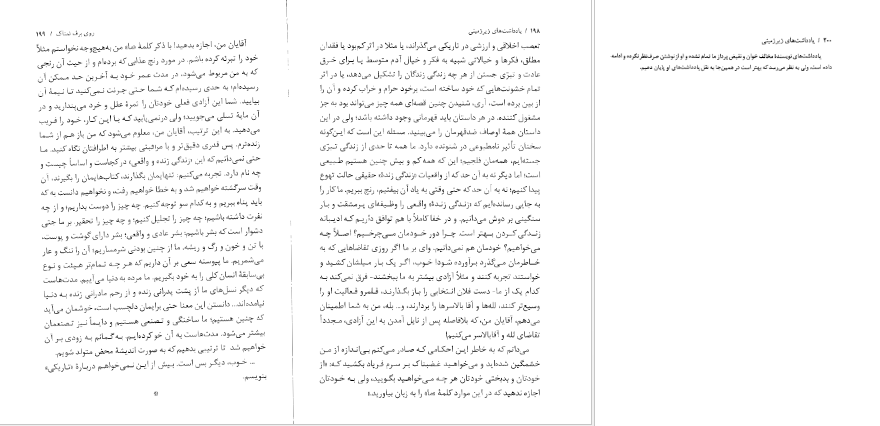 ۱۹۸ / یادداشت‌های زیرزمینی
تعصب اخلاقی و ارزشی در تاریکی می‌گذراند، یا مثلاً در اثر کمبود یا فقدان
مطلق، فکرها و خیالاتی شبیه به فکر و خیال آدم متوسط یا برای خرق
عادت و تبرّی جستن از هر چه زندگی زندگان را تشکیل می‌دهد، یا در اثر
تمام خشونت‌هایی که خود ساخته است، برخود حرام و خراب کرده و آن را
از بین برده است، آری، شنیدن چنین قصه‌ای همه چیز می‌تواند بود به جز
مشغول کننده. در هر داستان باید قهرمانی وجود داشته باشد؛ ولی در این
داستان همهٔ اوصاف، ضدقهرمان را می‌بینید. مسئله این است که این‌گونه
سخنان تأثیر نامطبوعی در شنونده دارد. ما همه تا حدی از زندگی تبرّی
جسته‌ایم، همه‌مان فلجیم؛ این که همه کم و بیش چنین هستیم طبیعی
است؛ اما دیگر نه به آن حد که از واقعیات «زندگی زنده» حقیقی حالت تهوع
پیدا کنیم؛ نه به آن حد که حتی وقتی به یاد آن بیفتیم، رنج ببریم. ما کار را
به جایی رسانده‌ایم که «زندگی زنده» واقعی را وظیفه‌ای پرمشقت و بار
سنگینی بر دوش می‌دانیم. و در خفا کاملاً با هم توافق داریم که ادیبانه
زندگی کردن بهتر است. چرا دور خودمان می‌چرخیم؟ اصلاً چه
می‌خواهیم؟ خودمان هم نمی‌دانیم. وای بر ما اگر روزی تقاضاهایی که به
خاطرمان می‌گذرد برآورده شود! خوب، اگر یک بار میلشان کشید و
خواستند، تجربه کنند و مثلاً آزادی بیشتر به ما ببخشند- فرق نمی‌کند به
کدام یک از ما- دست فلان انتخابی را باز بگذارند، قلمرو فعالیت او را
وسیع‌تر کنند، لله‌ها و آقا بالاسرها را بردارند، و.. بله، من به شما اطمینان
می‌دهم، آقایان من، که بلافاصله پس از نایل آمدن به این آزادی، مجدداً
تقاضای لله و آقابالاسر می‌کنیم!
می‌دانم که به خاطر این احکامی که صادر می‌کنم بی‌اندازه از من
خشمگین شده‌اید و می‌خواهید غضبناک بر سرم فریاد بکشید که: «از
خودتان و بدبختی خودتان هر چه می‌خواهید بگویید، ولی به خودتان
اجازه ندهید که در این موارد کلمهٔ «ما» را به زبان بیاورید.»
روی برف نمناک / ۱۹۹
آقایان من، اجازه بدهید! با ذکر کلمهٔ «ما» من به‌هیچ‌وجه نخواستم مثلاً
خود را تبرئه کرده باشم. در مورد رنج عذابی که برده‌ام و از حیث آن رنجی
که به من مربوط می‌شود، در مدت عمر خود به آخرین حد ممکن آن
رسیده‌ام؛ به حدی رسیده‌ام که شما حتی جرئت نمی‌کنید تا نیمهٔ آن
بیایید. شما این آزادی فعلی خودتان را ثمرهٔ عقل و خرد می‌پندارید و در
آن مایهٔ تسلی می‌جویید؛ ولی درنمی‌یابید که با این کار، خود را فریب
می‌دهید. به این ترتیب، آقایان من، معلوم می‌شود که من باز هم از شما
زنده‌ترم. پس قدری دقیق‌تر و با مراقبتی بیشتر به اطرافتان نگاه کنید. ما
حتی نمی‌دانیم که این «زندگی زنده و واقعی» در کجاست و اساساً چیست و
چه نام دارد. تجربه می‌کنیم: تنهایمان بگذارند، کتاب‌هایمان را بگیرند، آن
وقت سرگشته خواهیم شد و به خطا خواهیم رفت، و نخواهیم دانست به که
باید پناه ببریم و به کدام سو توجه کنیم. چه چیز را دوست بداریم؛ و از چه
نفرت داشته باشیم؛ چه چیز را تجلیل کنیم؛ و چه چیز را تحقیر. بر ما حتی
دشوار است که بشر باشیم؛ بشر عادی و واقعی؛ بشر دارای گوشت و پوست،
با تن و خون و رگ و ریشه. ما از چنین بودنی شرمساریم؛ آن را ننگ و عار
می‌شمریم. ما پیوسته سعی بر آن داریم که هر چه تمام‌تر هیئت و نوع
بی‌سابقهٔ انسان کلی را به خود بگیریم. ما مرده به دنیا می‌آییم. مدت‌هاست
که دیگر نسل‌های ما از پشت پدرانی زنده و از رحم مادرانی زنده به دنیا
نیامده‌اند... دانستن این معنا حتی برایمان دلچسب است، خوشمان می‌آید
که چنین هستیم؛ ما ساختگی و تصنعی هستیم و دایماً نیز تصنعمان
بیشتر می‌شود. مدت‌هاست به آن خو کرده‌ایم. به گمانم به زودی بر آن
خواهیم شد تا ترتیبی بدهیم که به صورت اندیشهٔ محض متولد شویم.
... خوب، دیگر بس است. بیش از این نمی‌خواهم دربارهٔ «تاریکی»
بنویسم.
۲۰۰ / یادداشت‌های زیرزمینی
یادداشت‌های نویسندهٔ مخالف خوان و نقیض پرداز ما تمام نشده و او از نوشتن صرف‌نظر نکرده و ادامه
داده است، ولی به نظر می‌رسد که بهتر است در همین‌جا به نقل یادداشت‌های او پایان دهیم.